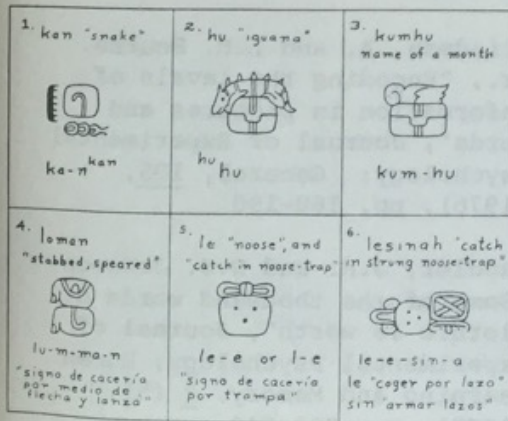 1.
kan "snake"
ka-n kan
2.
hu "iguana"
hu
hu
3.
kumhu
name of a month
kum-hu
4.
loman
"stabbed, speared"
lu-m-ma-n
"signo de cacería
por medio de
flecha y lanza"
5.
le "noose", and
"catch in noose-trap"
le-e or l-e
"signo de cacería
por trampa"
6.
lesinah "catch
in strung noose-trap"
le-e-sin-a
le "coger por lazo"
sin "armar lazos"